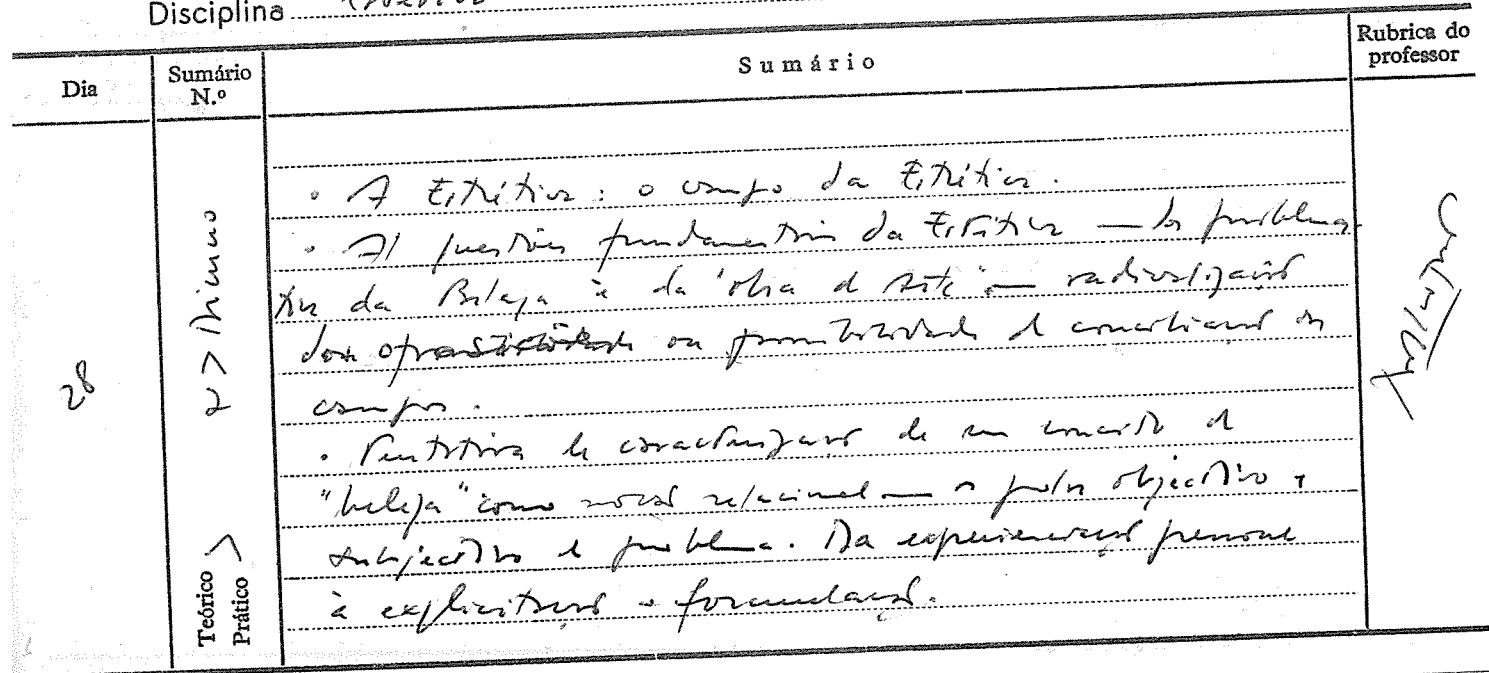 Disciplina
Dia
Sumário N.º
Sumário
Rubrica do professor
28
Teórico
Prático
. A Estética: o campo da Estética.
. As questões fundamentais da Estética — da problemá-
tica da Beleza à da "obra de Arte" —
ou possibilidade de conciliação dos
campos.
. Tentativa de caracterização de um conceito de
"beleza" como noção relacional — o polo objectivo e
subjectivo do problema. Da experienciação pessoal
à explicitação e formulação.